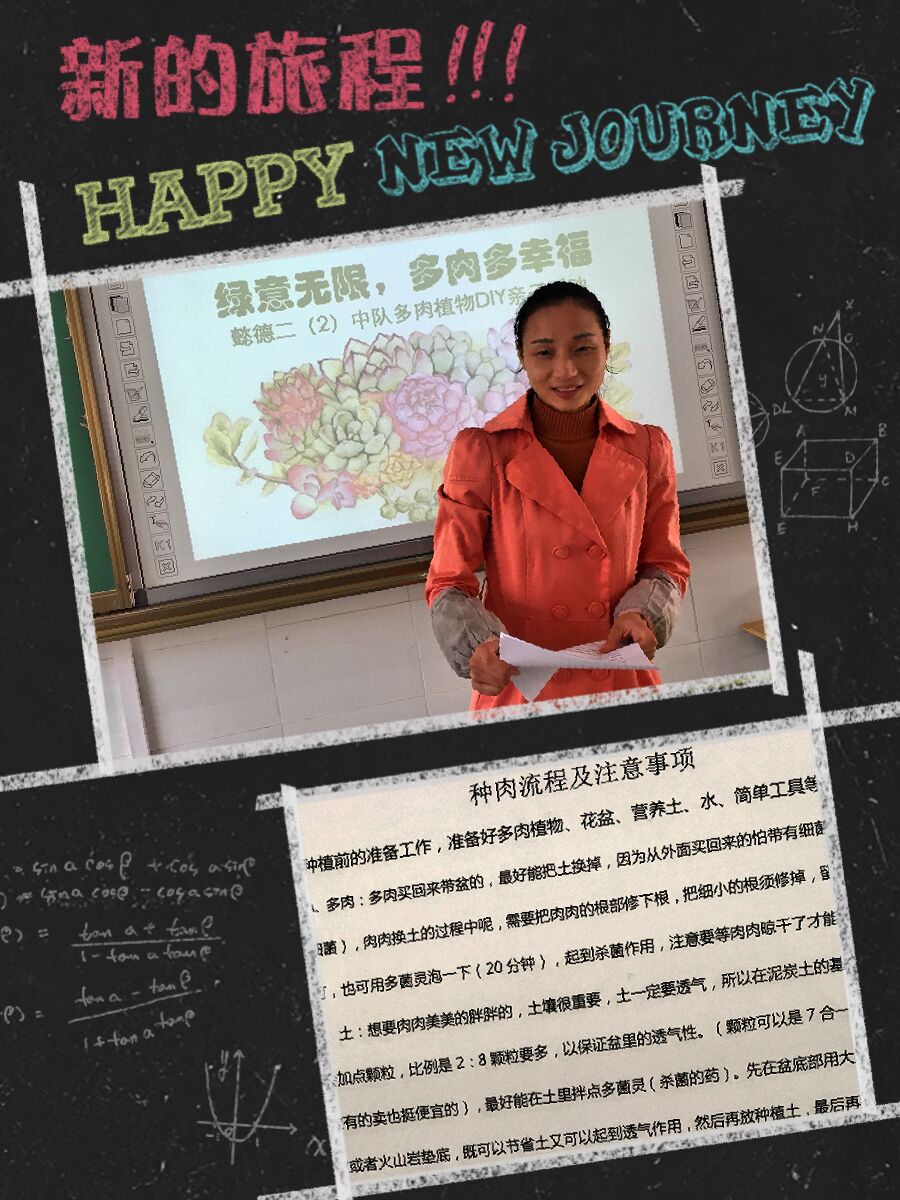 新的旅程!!!
HAPPY NEW JOURNEY
绿意无限，多肉多幸福
懿德二（2）中队多肉植物DIY亲子
K1
K1
X
N
O
y
M
DL
A
B
E
D
F
C
E
H
种肉流程及注意事项
种植前的准备工作，准备好多肉植物、花盆、营养土、水、简单工具等
、多肉：多肉买回来带盆的，最好能把土换掉，因为从外面买回来的怕带有细菌
细菌），肉肉换土的过程中呢，需要把肉肉的根部修下根，把细小的根须修掉，留
，也可用多菌灵泡一下（20分钟），起到杀菌作用，注意要等肉肉晾干了才能
土：想要肉肉美美的胖胖的，土壤很重要，土一定要透气，所以在泥炭土的基
加点颗粒，比例是2：8颗粒要多，以保证盆里的透气性。（颗粒可以是7合一
有的卖也挺便宜的），最好能在土里拌点多菌灵（杀菌的药）。先在盆底部用大
或者火山岩垫底，既可以节省土又可以起到透气作用，然后再放种植土，最后再
= sin a cos β + cos a sin β
) = sin a cos β - cos a sin β
β) = tan a + tan β
1 - tan a tan β
β) = tan a - tan β
1 + tan a tan β
y
-1
1
X